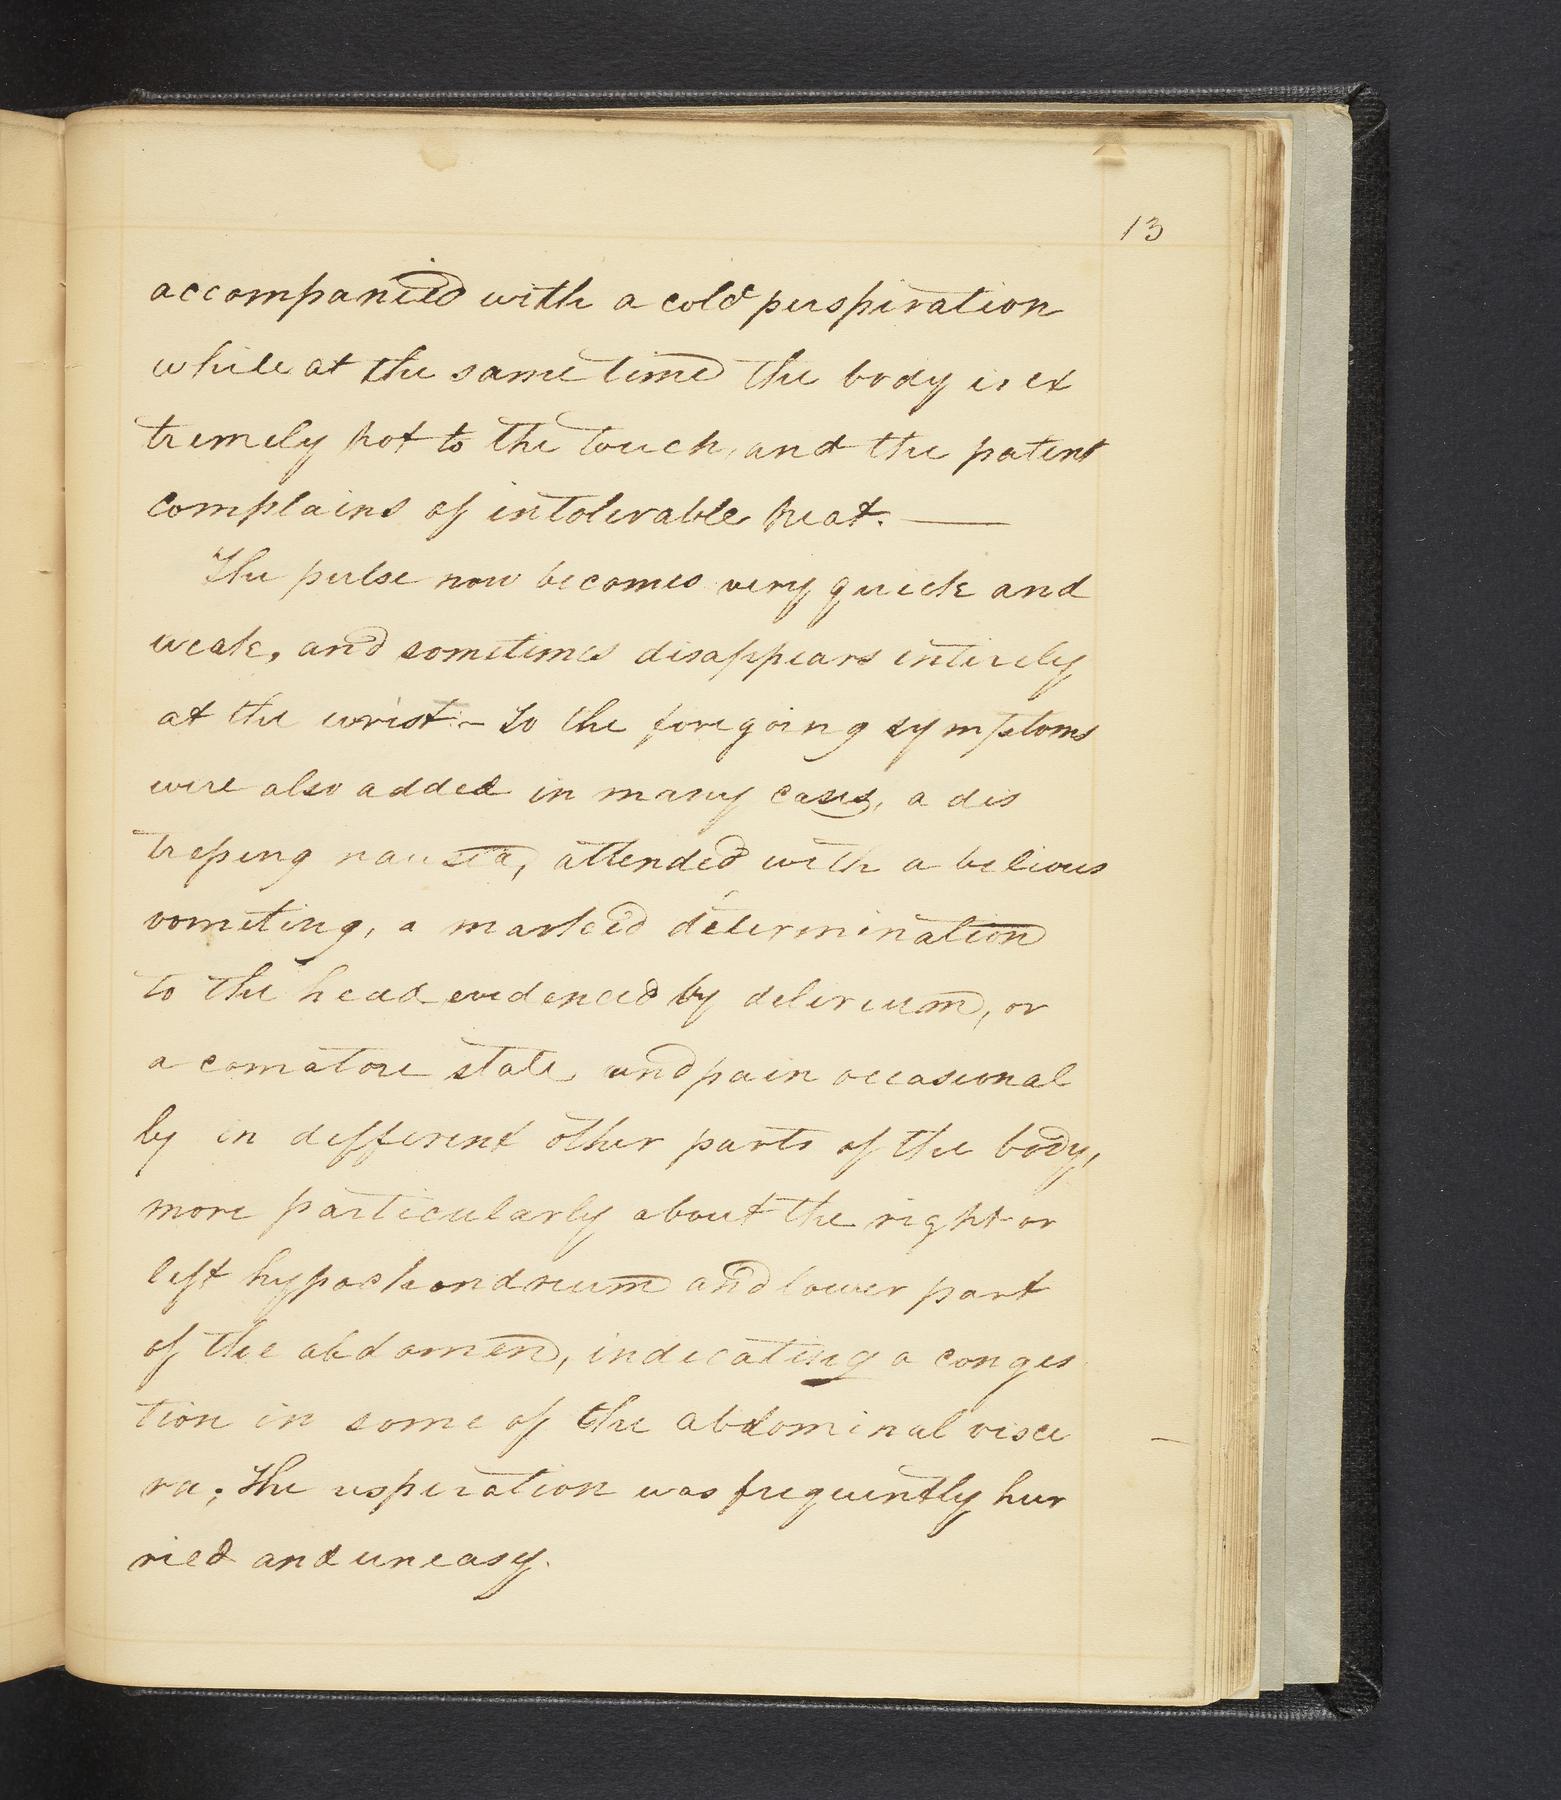 13
accompanied with a cold perspiration
while at the same time the body is ex
tremely hot to the touch, and the patent
complains of intolerable heat. —
The pulse now becomes very quick and
weak, and sometimes disappears entirely
at the wrist - To the foregoing symptoms
were also added in many cases, a dis
tressing nausea, attended with a bilious
vomiting, a marked determination
to the head evidenced by delirium, or
a comatose state and pain occasional
ly in different other parts of the body,
more particularly about the right or
left hypochondrium and lower part
of the abdomen, indicating a conges
tion in some of the abdominal visce
ra; The respiration was frequently hur
ried and uneasy.